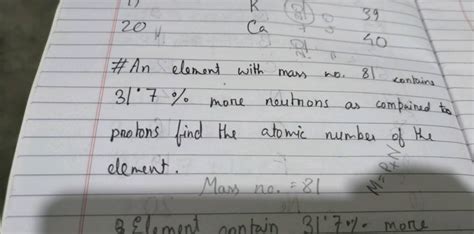 K 39
20 Ca 40
#An element with mass no. 81 contains
31.7 % more neutrons as compained to
protons find the atomic number of the
element.
Mass no. = 81
M=P+N
Element contain 31.7% more